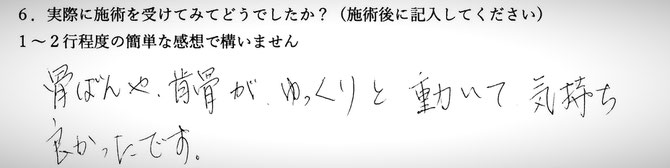 6．実際に施術を受けてみてどうでしたか？（施術後に記入してください）
１～２行程度の簡単な感想で構いません
骨ばんや、背骨が、ゆっくりと動いて気持ち
良かったです。